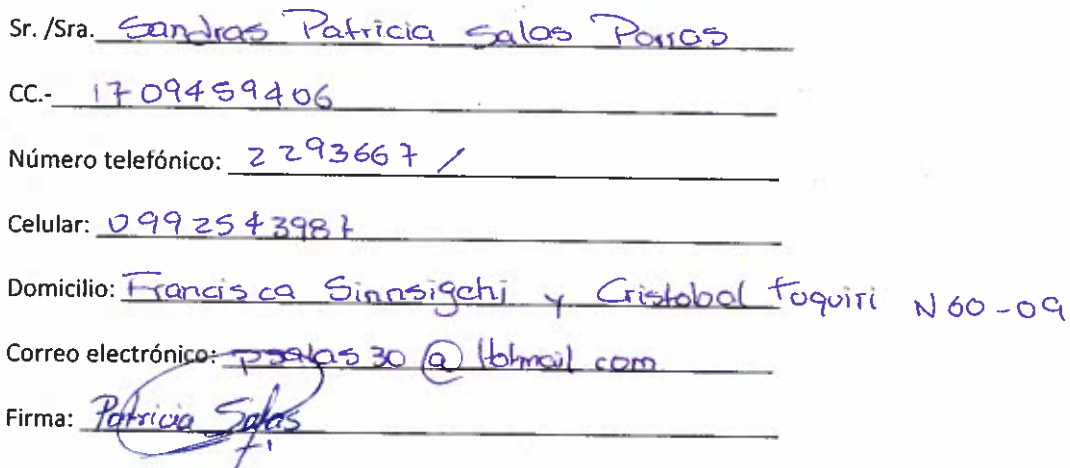 Sr. /Sra. Sandras Patricia Salas Porras
CC.- 1709459406
Número telefónico: 2293667 /
Celular: 0992543987
Domicilio: Francisca Sinnsigchi y Cristobal Toquiri N60-09
Correo electrónico: psalas30@Hotmail.com
Firma: Patricia Salas